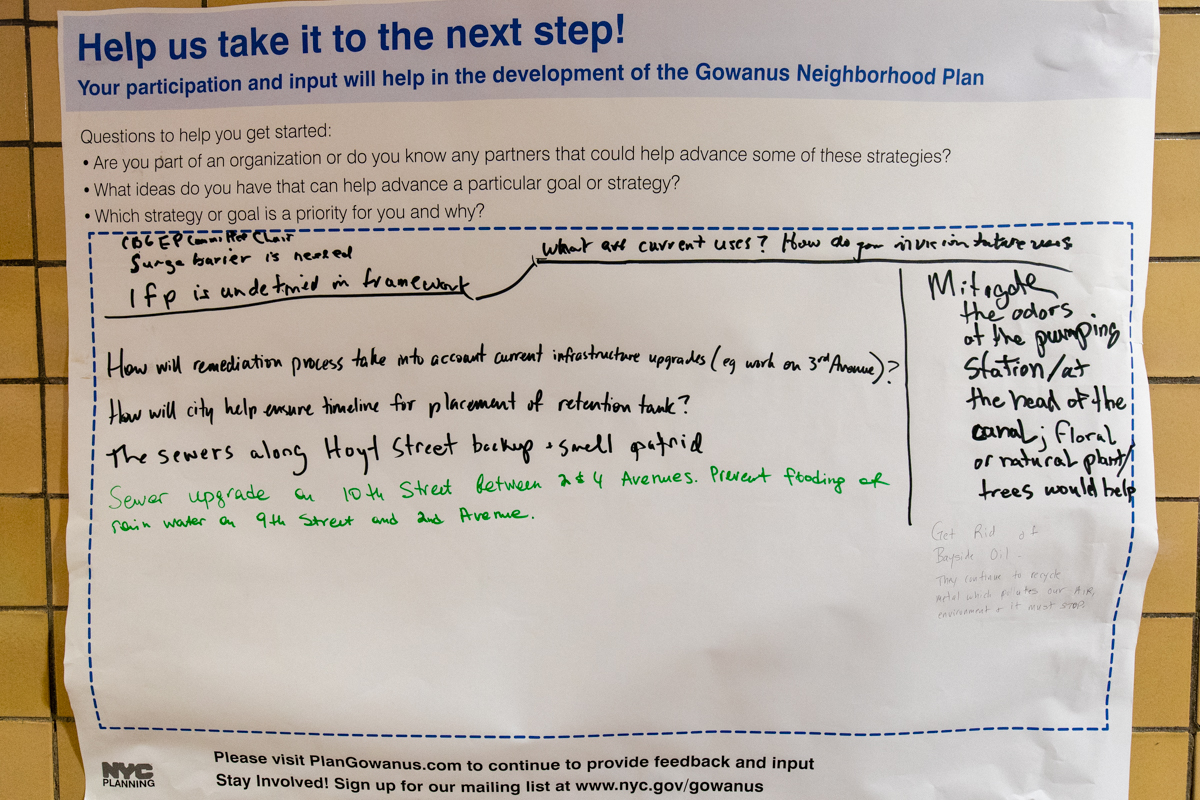 Help us take it to the next step!
Your participation and input will help in the development of the Gowanus Neighborhood Plan
Questions to help you get started:
• Are you part of an organization or do you know any partners that could help advance some of these strategies?
• What ideas do you have that can help advance a particular goal or strategy?
• Which strategy or goal is a priority for you and why?
CB6 EP Committee Chair
Surge barier is needed
Ifp is undefined in framework
What are current uses? How do you invision future uses
How will remediation process take into account current infrastructure upgrades (eg work on 3rd Avenue)?
How will city help ensure timeline for placement of retention tank?
The sewers along Hoyt Street backup + smell putrid
Sewer upgrade on 10th Street Between 2 & 4 Avenues. Prevent flooding of
rain water on 9th Street and 2nd Avenue.
Mitigate
the odors
at the pumping
station/at
the head of the
canal; floral
or natural plant/
trees would help
Get Rid of
Bayside Oil.
They continue to recycle
metal which our AIR,
environment + it must STOP.
NYC
PLANNING
Please visit PlanGowanus.com to continue to provide feedback and input
Stay Involved! Sign up for our mailing list at www.nyc.gov/gowanus